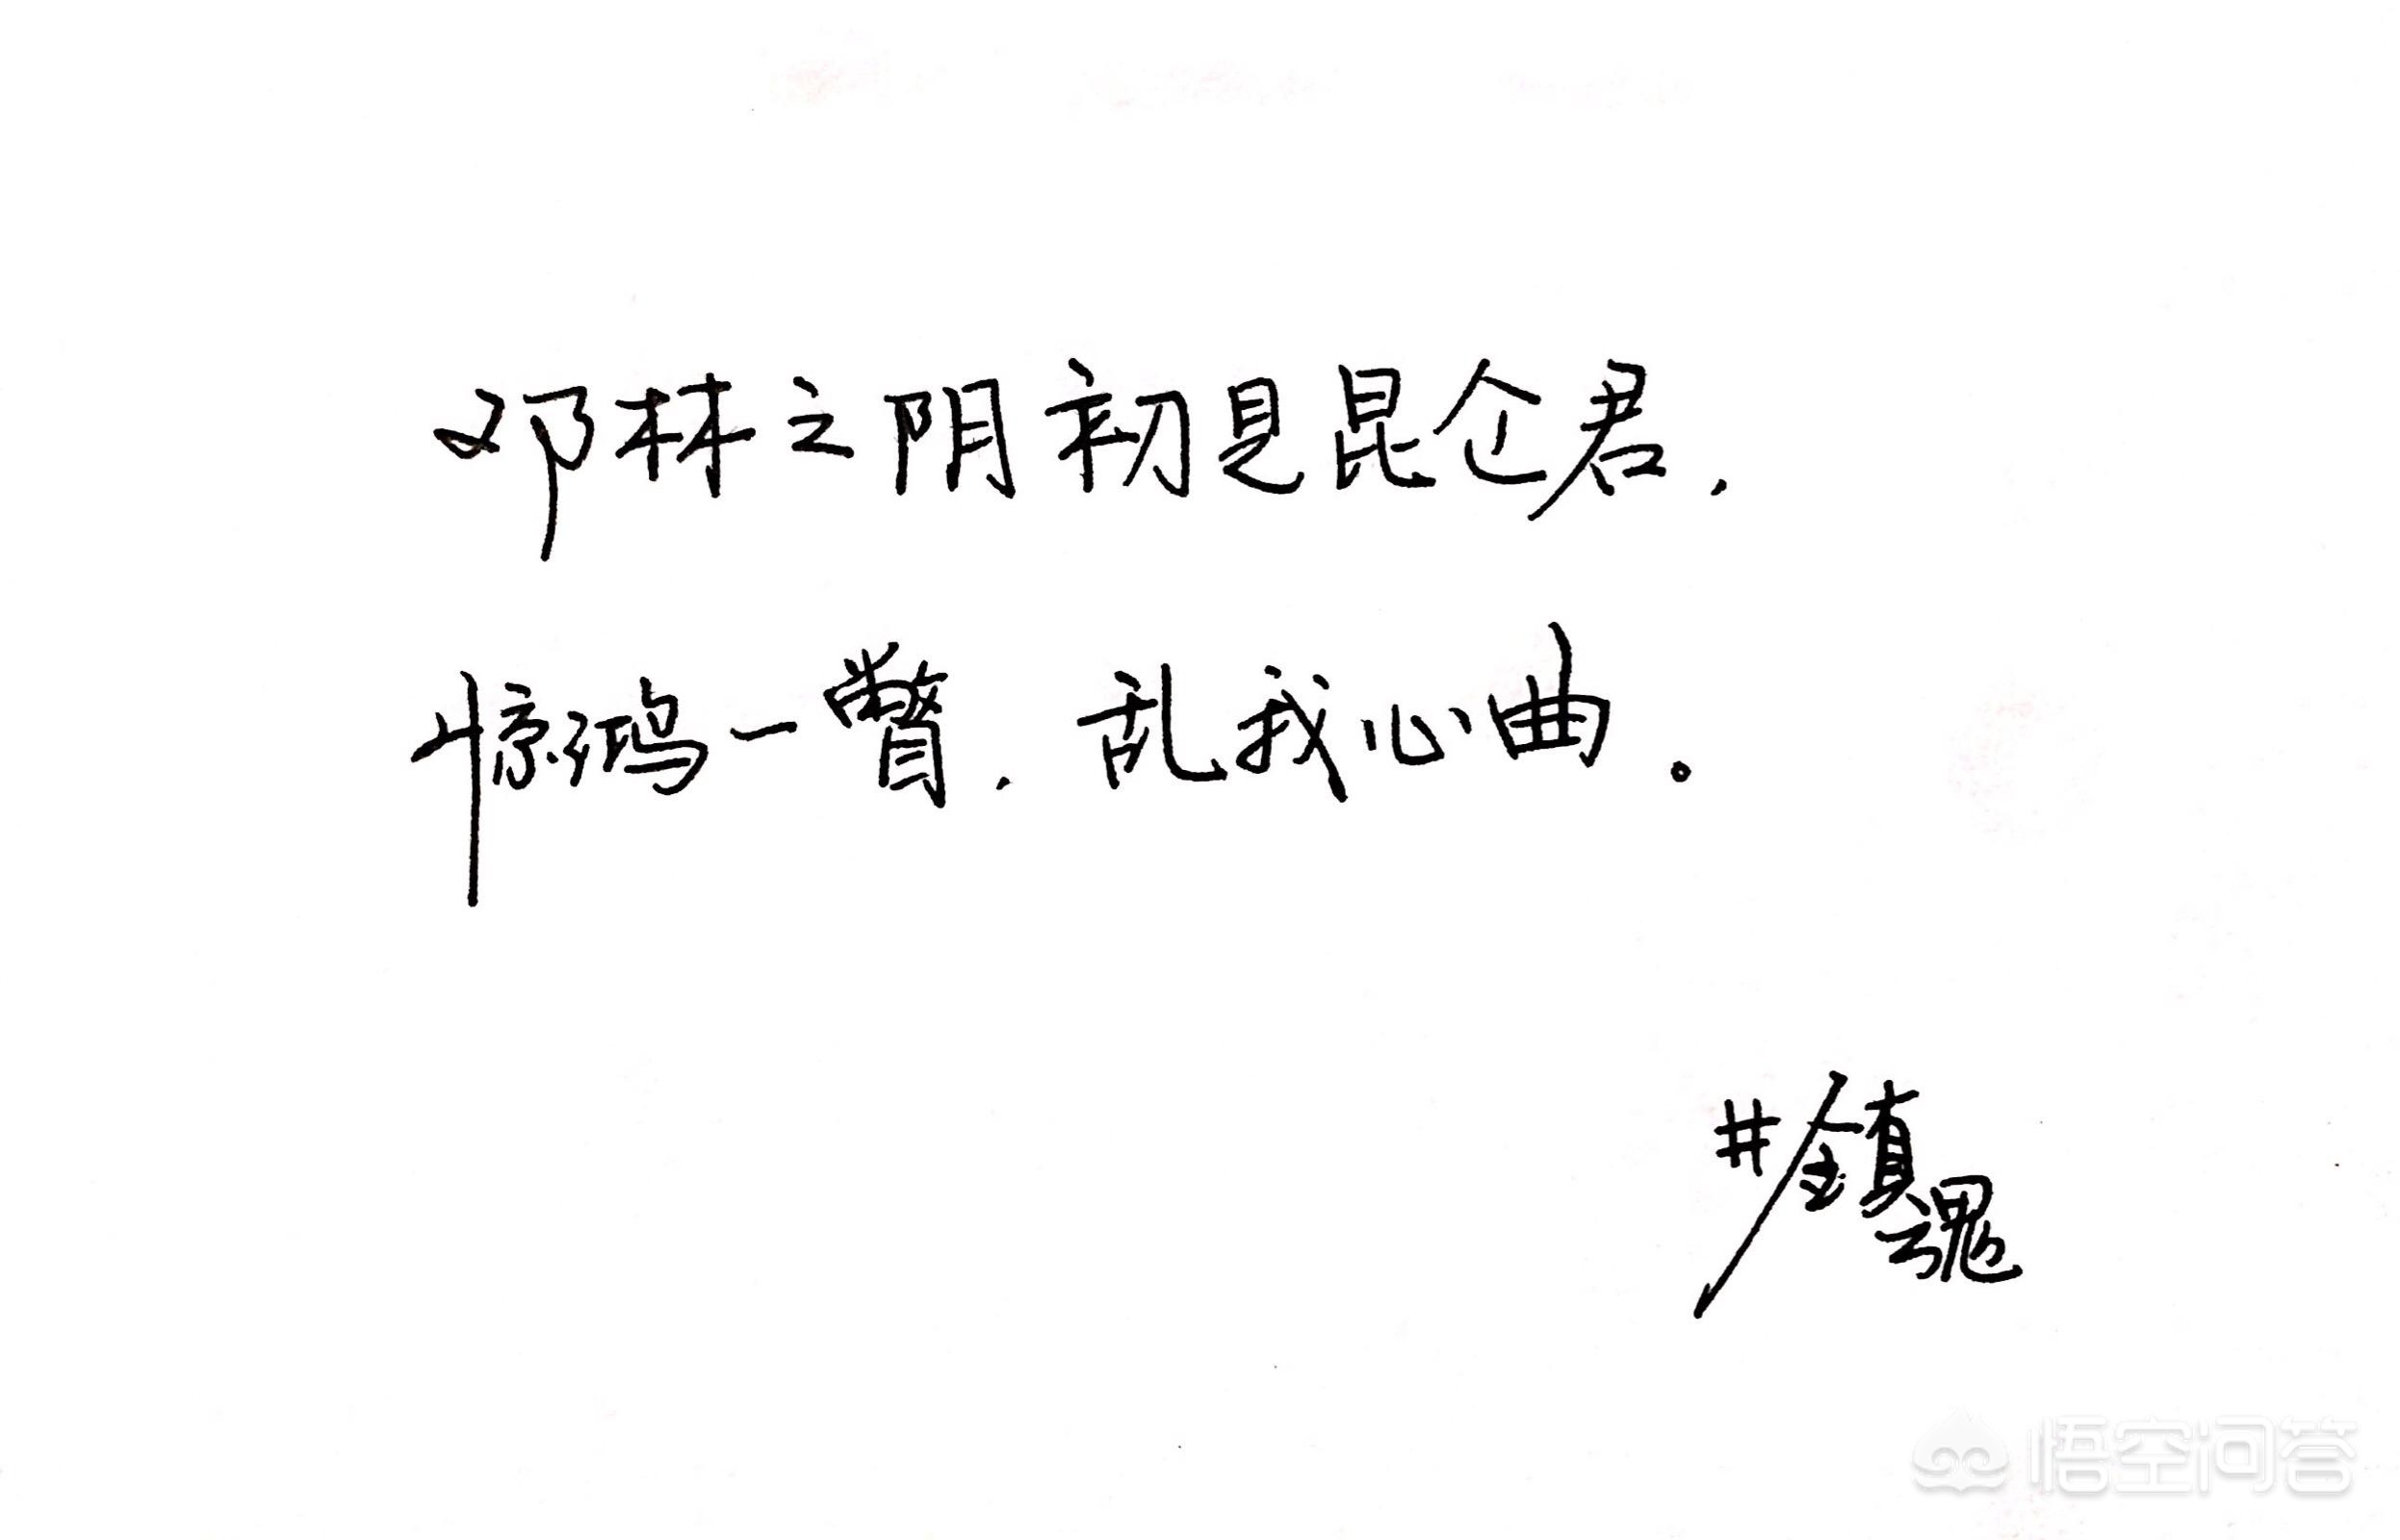 邓林之阴初是昆仑君，
惊鸿一瞥，乱我心曲。
#镇魂
悟空问答